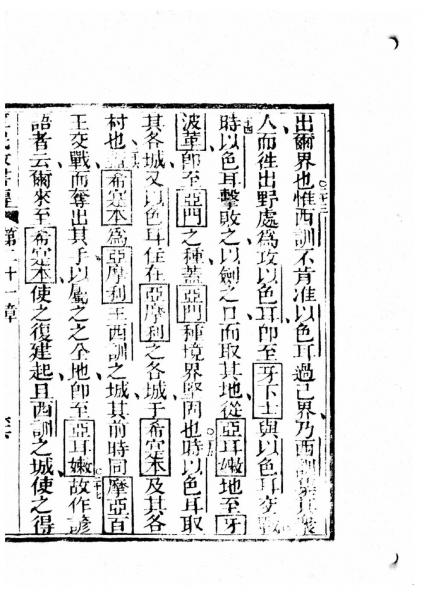 出爾界也惟西訓不肯准以色耳過己界乃西訓
人而徃出野處爲攻以色耳卽至牙下士與以色耳交戰
時以色耳擊敗之以劍之口而取其地從亞耳嫩地至牙
波革卽至亞門之種蓋亞門種境界堅固也時以色耳取
其各城又以色耳住在亞摩利之各城于希寔本及其各
村也希寔本爲亞摩利王西訓之城其前時同摩亞百
王交戰而奪出其手以屬之之全地卽至亞耳嫩故作諺
語者云爾來至希寔本使之復建起且西訓之城使之得
第二十一章